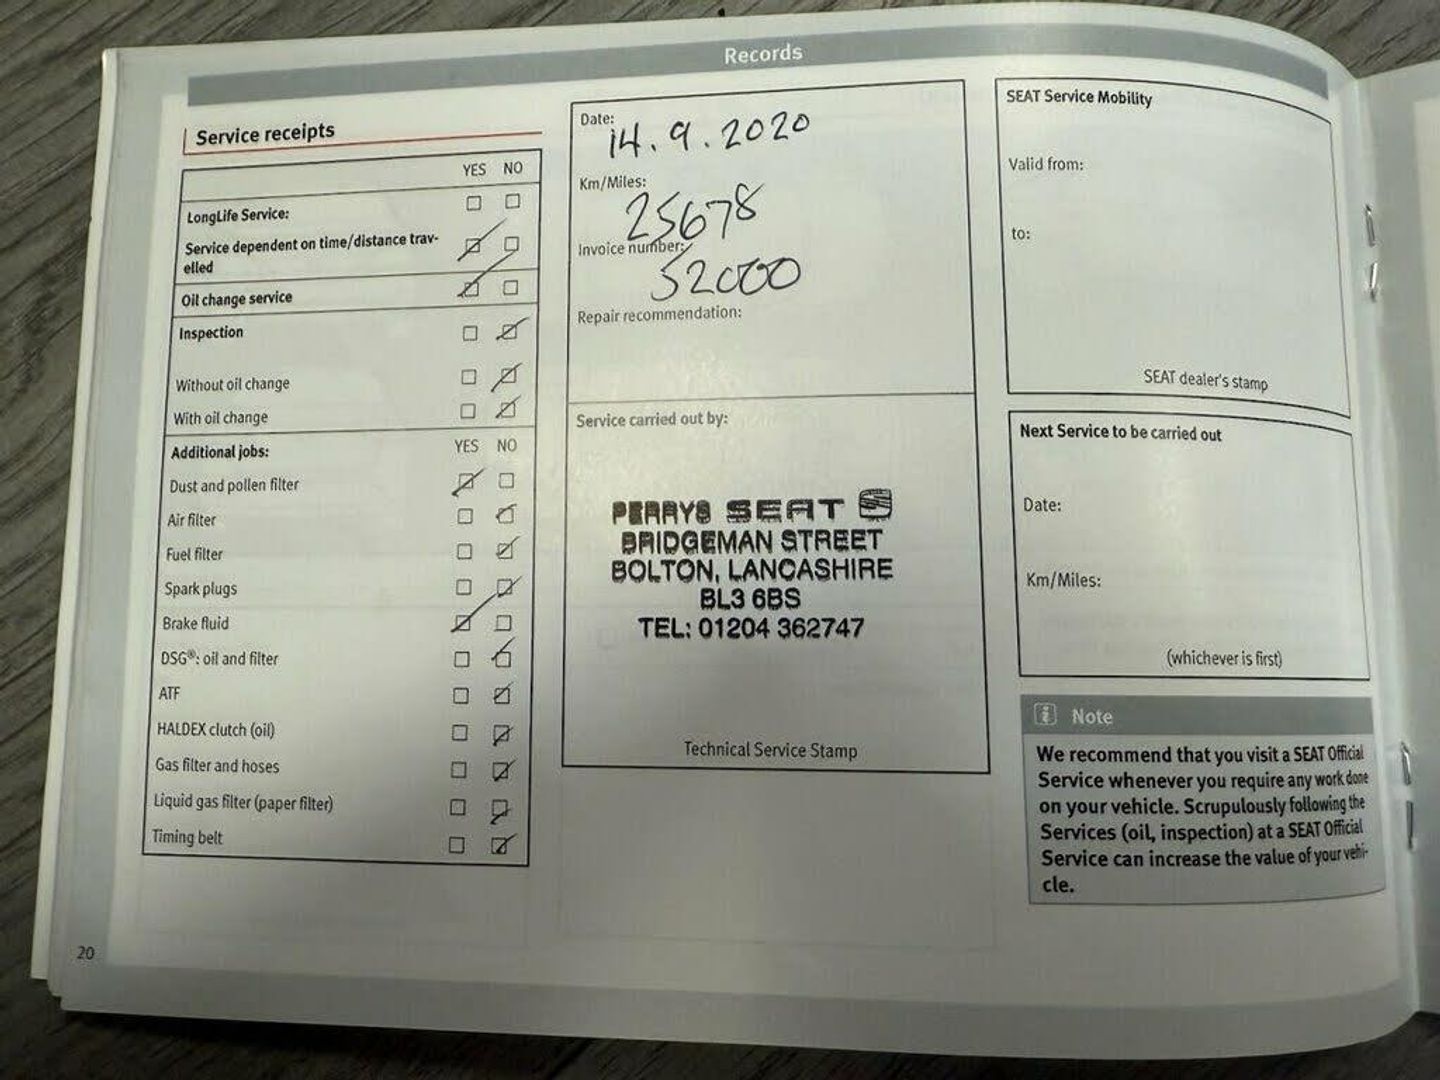 Records
Service receipts
YES NO
LongLife Service:
Service dependent on time/distance trav-
elled
Oil change service
Inspection
Without oil change
With oil change
Additional jobs: YES NO
Dust and pollen filter
Air filter
Fuel filter
Spark plugs
Brake fluid
DSG®: oil and filter
ATF
HALDEX clutch (oil)
Gas filter and hoses
Liquid gas filter (paper filter)
Timing belt
20
Date:
14.9.2020
Km/Miles:
25678
Invoice number:
52000
Repair recommendation:
Service carried out by:
PERRYS SEAT
BRIDGEMAN STREET
BOLTON, LANCASHIRE
BL3 6BS
TEL: 01204 362747
Technical Service Stamp
SEAT Service Mobility
Valid from:
to:
SEAT dealer's stamp
Next Service to be carried out
Date:
Km/Miles:
(whichever is first)
i Note
We recommend that you visit a SEAT Official
Service whenever you require any work done
on your vehicle. Scrupulously following the
Services (oil, inspection) at a SEAT Official
Service can increase the value of your vehi-
cle.